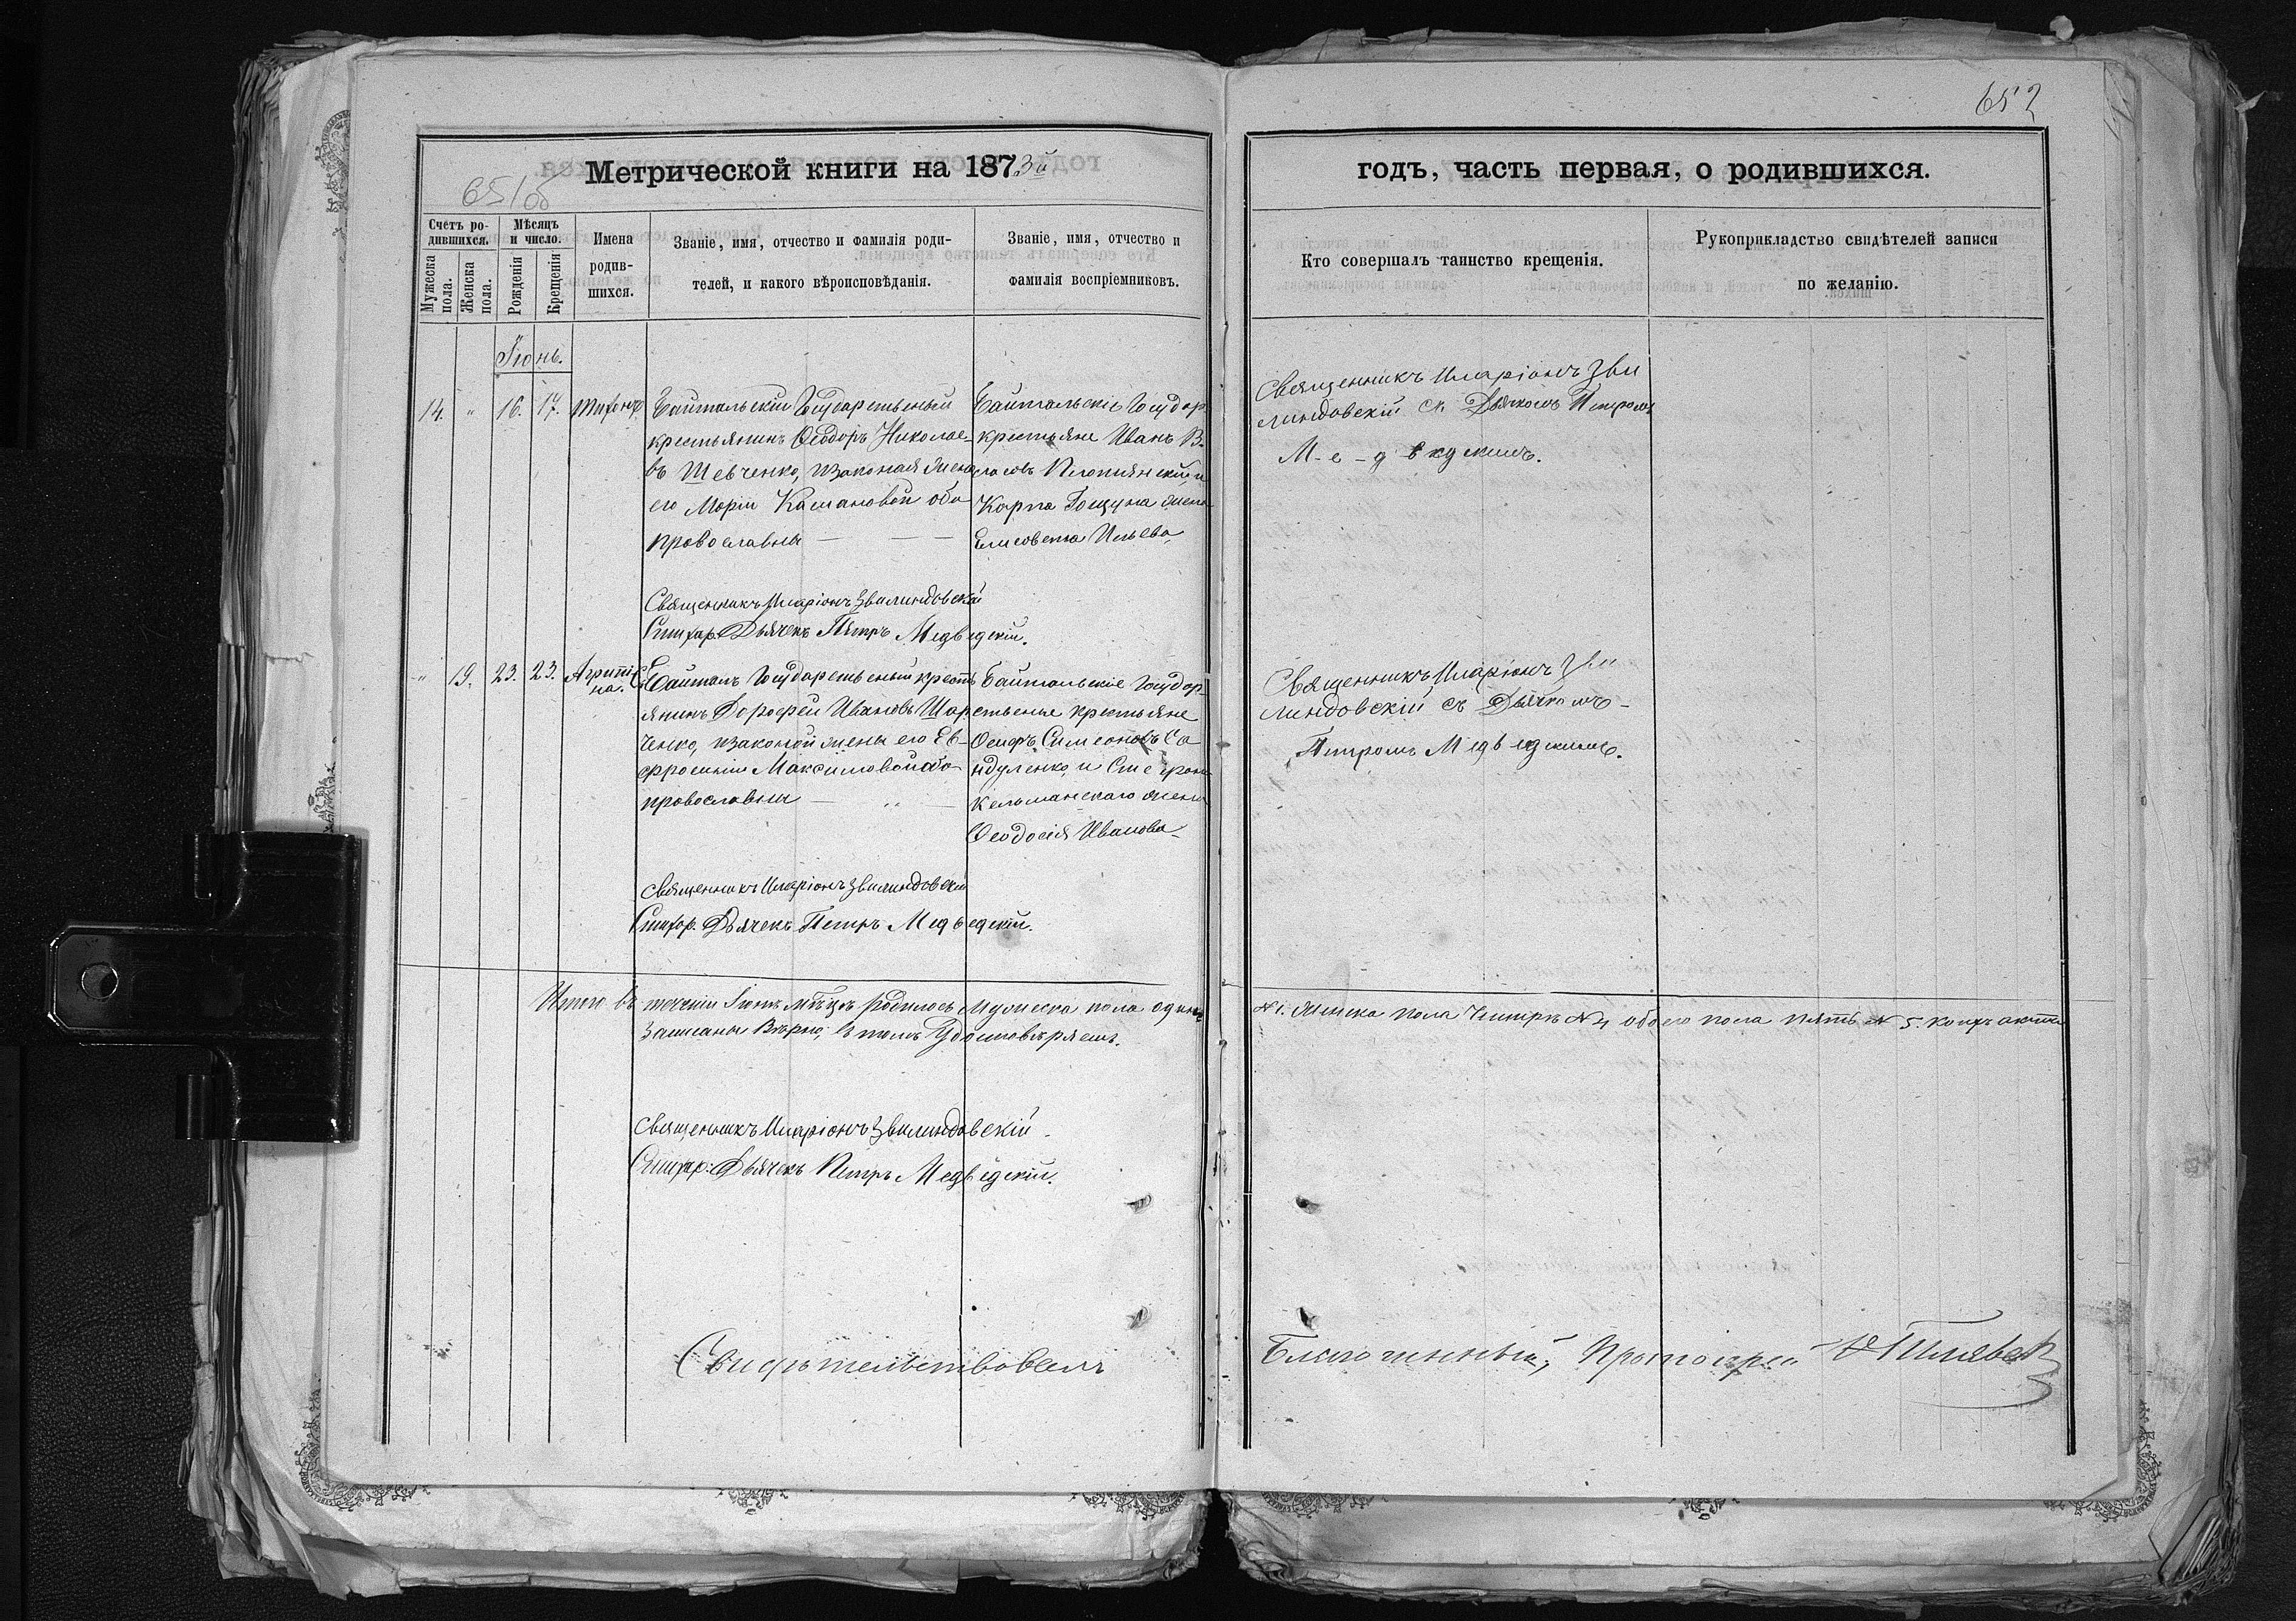 652
Метрической книги на 1873й
годъ, часть первая, о родившихся.
651об
Счетъ родившихся.
Мужеска пола.
Женска пола.
Мѣсяцъ и число.
Рожденія
Крещенія
Имена родившихся.
Званіе, имя, отчество и фамилія родителей, и какого вѣроисповѣданія.
Званіе, имя, отчество и фамилія воспріемниковъ.
Кто совершалъ таинство крещенія.
Рукоприкладство свидѣтелей записи по желанію.
Іюнь.
14. " 16. 17. Тихонъ
Байтальскій Государственый
крестьянинъ Ѳеодоръ Николае-
въ Шевченко, изаконая жена
его Марiи Касіановой оба
православны
Байтальскіе Государ.
крестьяне Иванъ В-
ласовъ и
Карпа жена
Елисовета Ильева
Священникъ Иларіонъ Звилиндовскій
Стихар. Дьячекъ Петръ Медведскій.
Священникъ Иларіонъ Зви
линдовскій съ Дьячкомъ Петромъ
М-е-д в едскимъ.
" 19. 23. 23. Агрипі
на.
Байталъ Государственый кресть
янинъ Дороѳей Ивановъ Шар
ченко, изаконой жены его Ев-
фросиніи Максимовой оба
православны
Байтальскіе Государ-
ственые крестьяне
Осифъ Симеоновъ Са
ндуленко, и Стефана
Кельманскаго жена
Ѳеодосія Иванова
Священникъ Иларіонъ Звилиндовскій
Стихар. Дьячекъ Петръ Медведскій.
Священникъ Иларіонъ Зви
линдовскій съ Дьячкомъ
Петромъ Медведскимъ.
Итого въ теченіи Іюнь мѣсяцъ родилось Мужеска пола одинъ
№ 1. Женска пола Четыре № 4 обоего пола пять № 5. коихъ акты
Записаны Вѣрно, в томъ Удостовѣряемъ.
Священникъ Иларіонъ Звилиндовскій
Стихар: Дьячекъ Петръ Медведскій.
Свидѣтельствовалъ
Благочинный, Протоіерей